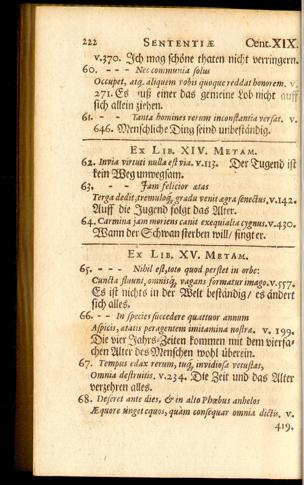 222 SENTENTIÆ Cent. XIX.
v. 370. Ich mag schöne thaten nicht verringern.
60. - - - Nec communia solus
Occupet, atq; aliquem vobis quoque reddat honorem. v.
271. Es muß einer das gemeine Lob nicht auff
sich allein ziehen.
61. - - - Tanta homines rerum inconstantia versat. v.
646. Menschliche Ding seind unbeständig.
EX LIB. XIV. METAM.
62. Invia virtuti nulla est via. v. 113. Der Tugend ist
kein Weg unwegsam.
63. - - Jam felicior ætas
Terga dedit, tremuloq; gradu venit ægra senectus. v. 142.
Auff die Jugend folgt das Alter.
64. Carmina jam moriens canit exequialia cygnus. v. 430.
Wann der Schwan sterben will / singt er.
EX LIB. XV. METAM.
65. - - - Nihil est, toto quod perstet in orbe:
Cuncta fluunt, omnisq; vagans formatur imago. v. 557.
Es ist nichts in der Welt beständig / es ändert
sich alles.
66. - - In species succedere quattuor annum
Aspicis, ætatis peragentem imitamina nostræ. v. 199.
Die vier Jahrs-Zeiten kommen mit dem vierfa-
chen Alter des Menschen wohl überein.
67. Tempus edax rerum, tuq; invidiosa vetustas,
Omnia destruitis. v. 234. Die Zeit und das Alter
verzehren alles.
68. Deseret ante dies, & in alto Phœbus anhelos
Æquore tinget equos, quàm consequar omnia dictis. v.
419.